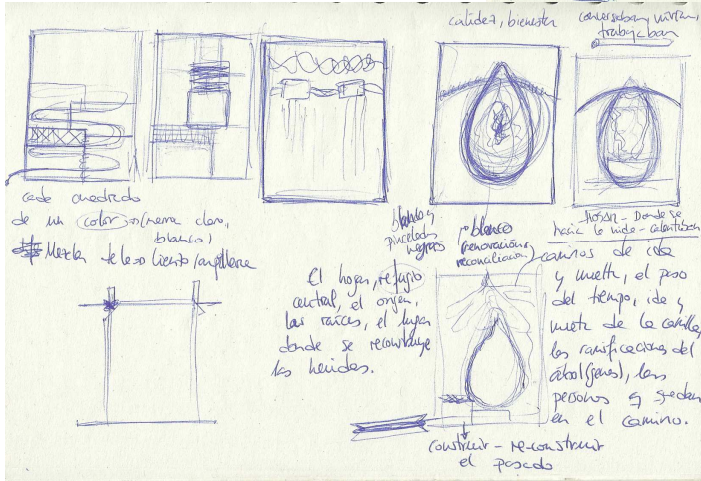 calidez, bienestar
conversaban, vivían,
trabajaban
cada cuadrado
de un color
blanco)
Mezcla telas lienzo/arpillera
blando y
pinceladas
negras
blanco
(renovación,
reconciliación)
HOGAR - Donde se
hacía la vida - calentaban
El hogar, refugio
central, el origen,
las raíces, el lugar
donde se reconstruye
las heridas.
caminos de ida
y vuelta, el paso
del tiempo, ida y
vuelta de la
las ramificaciones del
árbol (genes), las
personas q quedan
en el camino.
construir - re-construir
el pasado